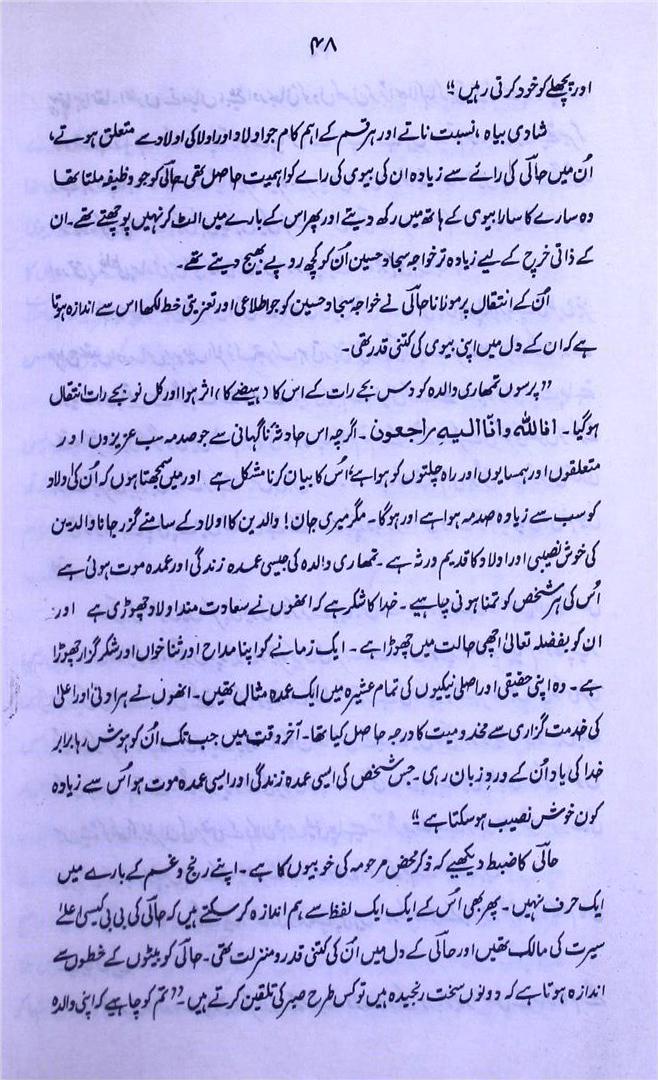 ۴۸
اور پچھلے کو خود کرتی رہیں "
شادی بیاہ ، نسبت ناتے اور ہر قسم کے اہم کام جو اولاد اور اولاد کی اولاد سے متعلق ہوتے ،
اُن میں حالی کی رائے سے زیادہ ان کی بیوی کی رائے کو اہمیت حاصل تھی حالی کو جو وظیفہ ملتا تھا
وہ سارے کا سارا بیوی کے ہاتھ میں رکھ دیتے اور پھر اس کے بارے میں الٹ کر نہیں پوچھتے تھے ۔ ان
کے ذاتی خرچ کے لیے زیادہ تر خواجہ سجاد حسین اُن کو کچھ روپے بھیج دیتے تھے ۔
اُن کے انتقال پر مولانا حالی نے خواجہ سجاد حسین کو جو اطلاعی اور تعزیتی خط لکھا اس سے اندازہ ہوتا
ہے کہ ان کے دل میں اپنی بیوی کی کتنی قدر تھی ۔
" پرسوں تمھاری والدہ کو دس بجے رات کے اس کا ( ہیضے کا ) اثر ہوا اور کل نو بجے رات انتقال
ہو گیا ۔ انا للہ وانا الیہ راجعون ۔ اگرچہ اس حادثۂ ناگہانی سے جو صدمہ سب عزیزوں اور
متعلقوں اور ہمسایوں اور راہ چلتوں کو ہوا ہے اُس کا بیان کرنا مشکل ہے اور میں سمجھتا ہوں کہ اُن کی اولاد
کو سب سے زیادہ صدمہ ہوا ہے اور ہوگا ۔ مگر میری جان ! والدین کا اولاد کے سامنے گزر جانا والدین
کی خوش نصیبی اور اولاد کا قدیم ورثہ ہے ۔ تمھاری والدہ کی جیسی عمدہ زندگی اور عمدہ موت ہوئی ہے
اُس کی ہر شخص کو تمنا ہونی چاہیے ۔ خدا کا شکر ہے کہ انھوں نے سعادت مند اولاد چھوڑی ہے اور
ان کو بفضلہ تعالیٰ اچھی حالت میں چھوڑا ہے ۔ ایک زمانے کو اپنا مداح اور ثنا خواں اور شکر گزار چھوڑا
ہے ۔ وہ اپنی حقیقی اور اصلی نیکیوں کی تمام عشیرہ میں ایک عمدہ مثال تھیں ۔ انھوں نے ہر ادنیٰ اور اعلیٰ
کی خدمت گزاری سے مخدومیت کا درجہ حاصل کیا تھا ۔ آخر وقت میں جب تک اُن کو ہوش رہا برابر
خدا کی یاد اُن کے وردِ زبان رہی ۔ جس شخص کی ایسی عمدہ زندگی اور ایسی عمدہ موت ہو اُس سے زیادہ
کون خوش نصیب ہو سکتا ہے "
حالی کا ضبط دیکھیے کہ ذکر محض مرحومہ کی خوبیوں کا ہے ۔ اپنے رنج و غم کے بارے میں
ایک حرف نہیں ۔ پھر بھی اُس کے ایک ایک لفظ سے ہم اندازہ کر سکتے ہیں کہ حالی کی بی بی کیسی اعلےٰ
سیرت کی مالک تھیں اور حالی کے دل میں اُن کی کتنی قدر و منزلت تھی ۔ حالی کو بیٹوں کے خطوں سے
اندازہ ہوتا ہے کہ دونوں سخت رنجیدہ ہیں تو کس طرح صبر کی تلقین کرتے ہیں ۔ " تم کو چاہیے کہ اپنی والدہ